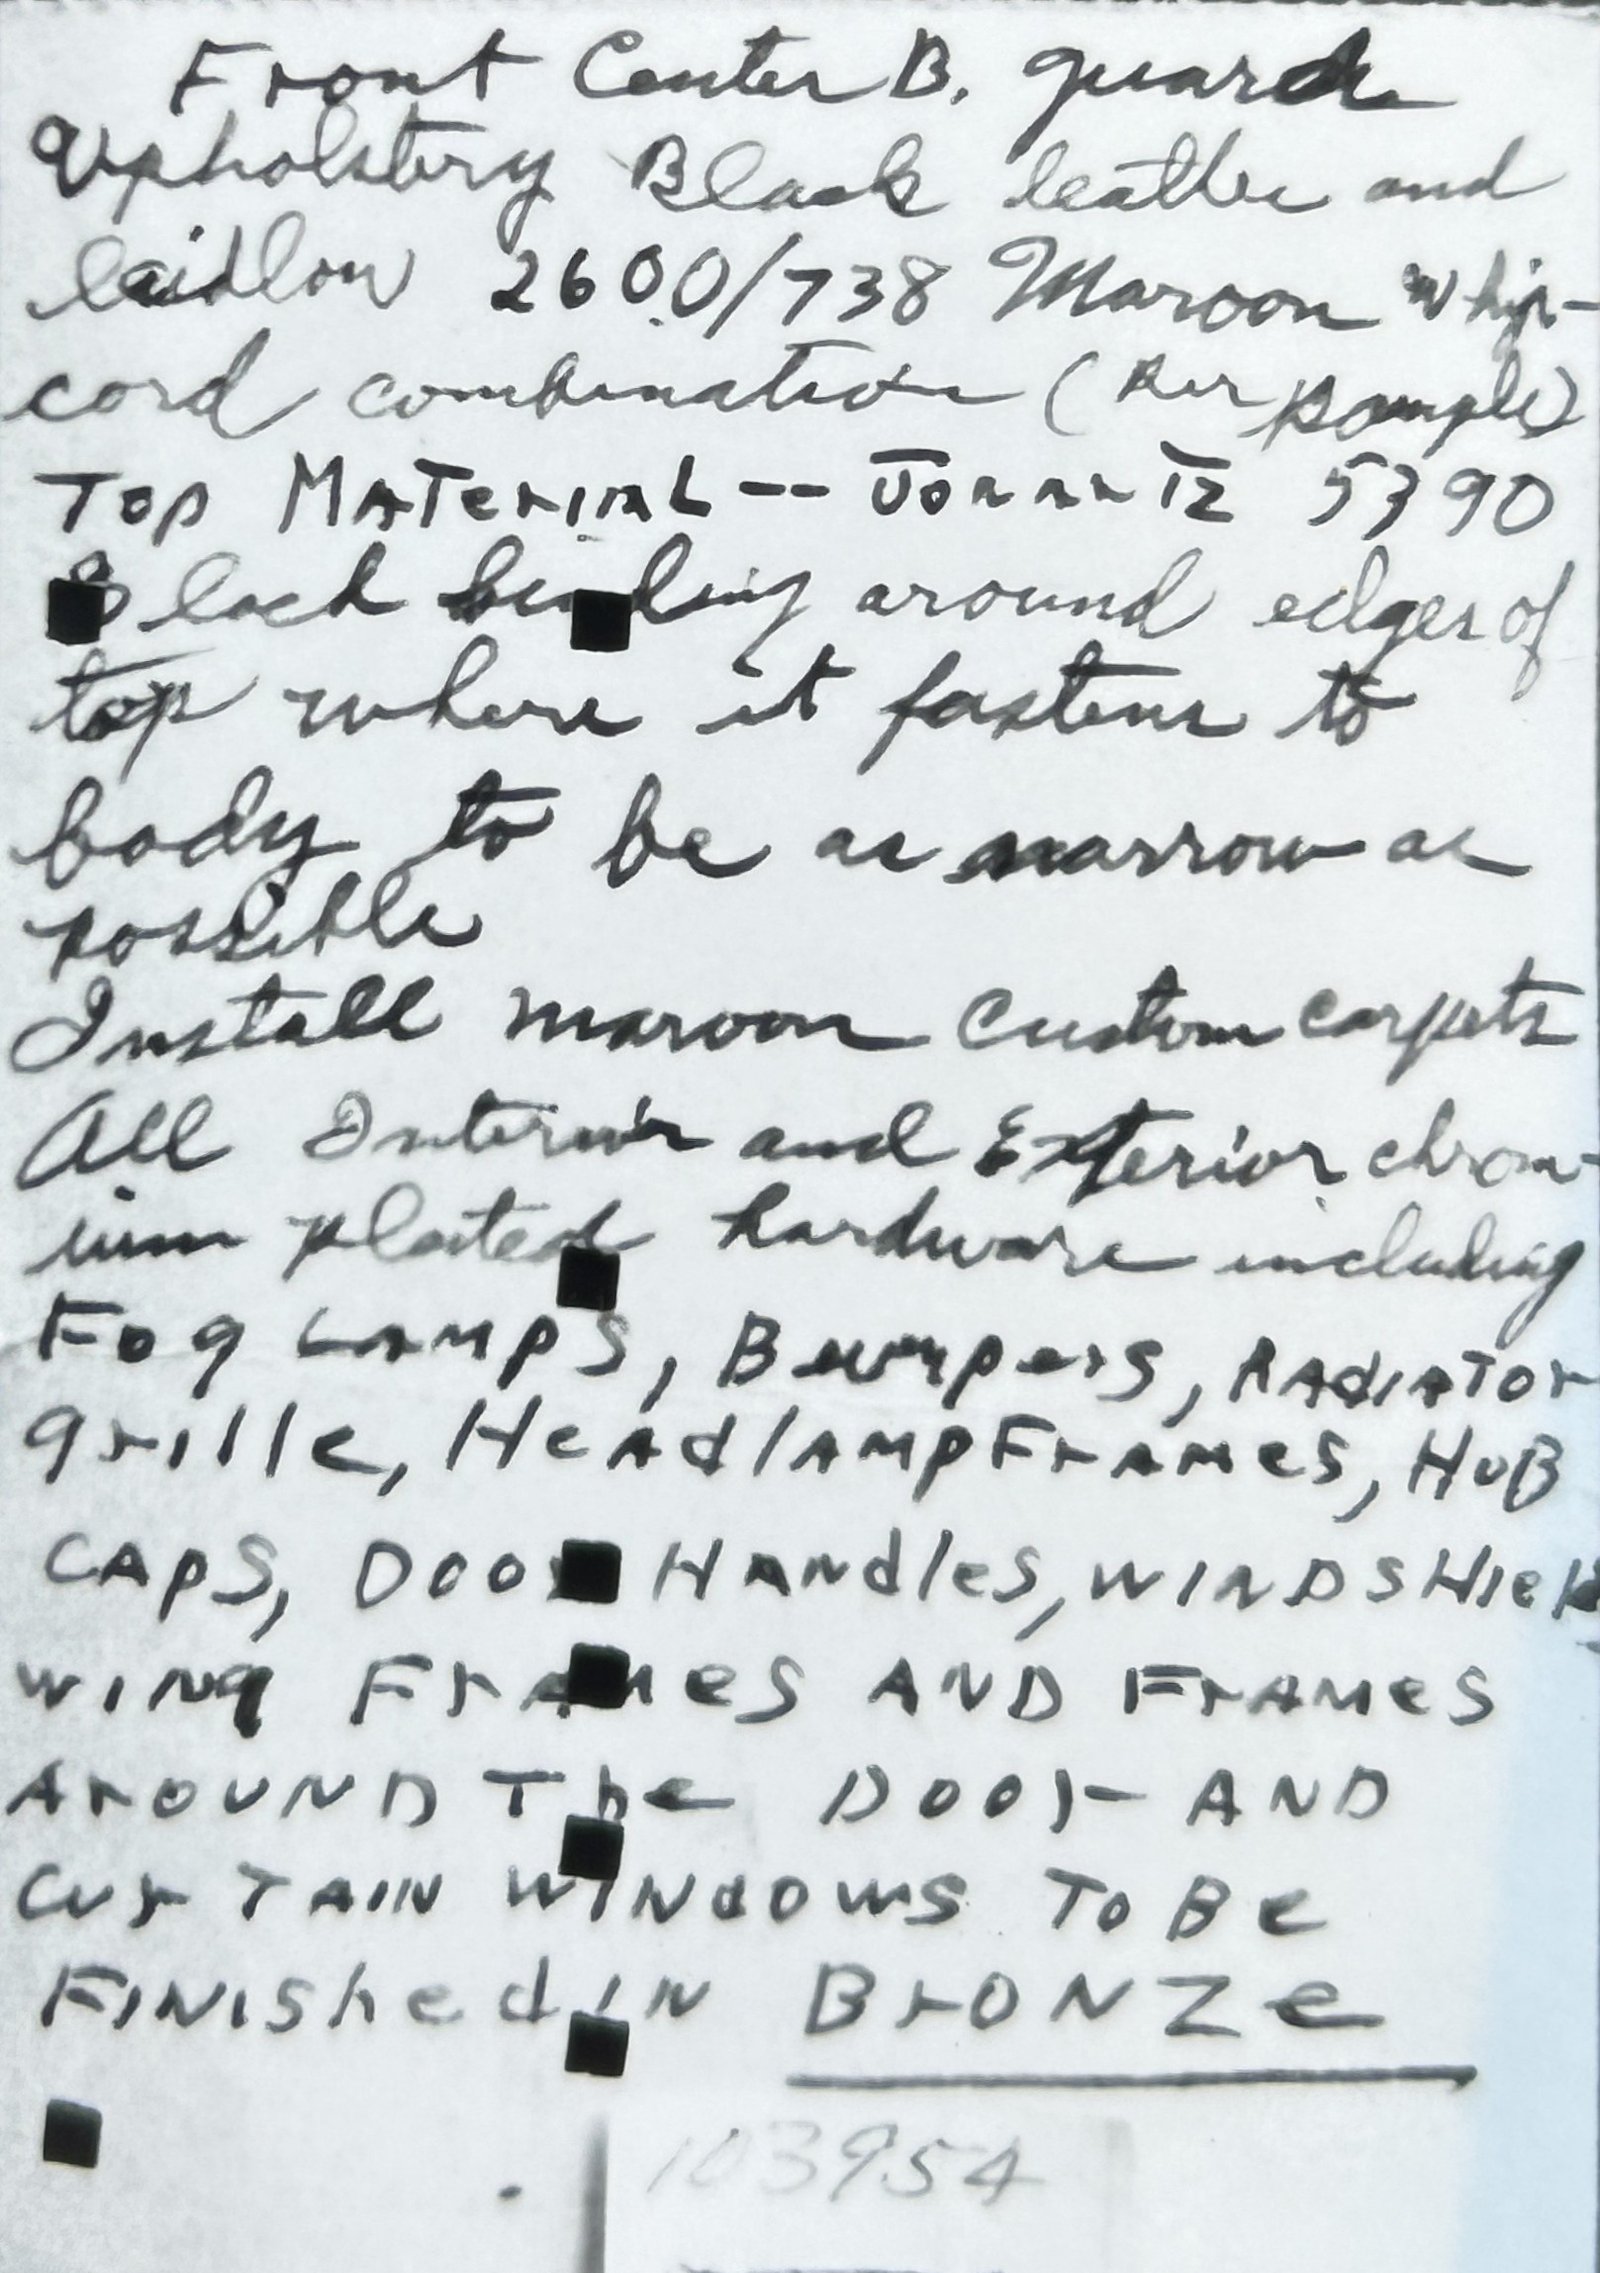 Front Center B. guard
Upholstery Black leather and
laidlow 2600/738 Maroon whip-
cord combination (Per Sample)
Top Material -- Jonartz 5390
Black binding around edges of
top where it fastens to
body to be as narrow as
possible
Install maroon custom carpets
All Interior and Exterior chrom-
ium plated hardware including
Fog Lamps, Bumpers, Radiator
grille, Headlamp Frames, Hub
Caps, Door Handles, Windshield
wing Frames and Frames
Around The Door and
Curtain Windows To Be
Finished in Bronze
103954